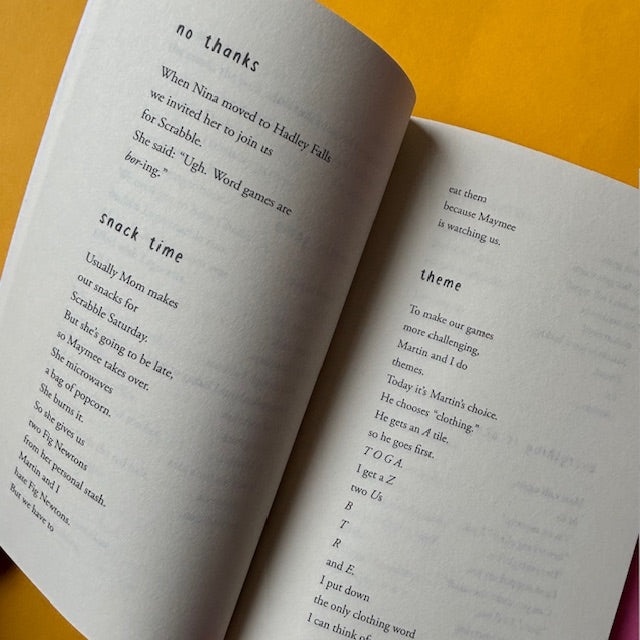 no thanks
When Nina moved to Hadley Falls
we invited her to join us
for Scrabble.
She said: “Ugh. Word games are
bor-ing.”
snack time
Usually Mom makes
our snacks for
Scrabble Saturday.
But she’s going to be late,
so Maymee takes over.
She microwaves
a bag of popcorn.
She burns it.
So she gives us
two Fig Newtons
from her personal stash.
Martin and I
hate Fig Newtons.
But we have to
eat them
because Maymee
is watching us.
theme
To make our games
more challenging,
Martin and I do
themes.
Today it’s Martin’s choice.
He chooses “clothing.”
He gets an A tile.
so he goes first.
T O G A.
I get a Z
two Us
B
T
R
and E.
I put down
the only clothing word
I can think of